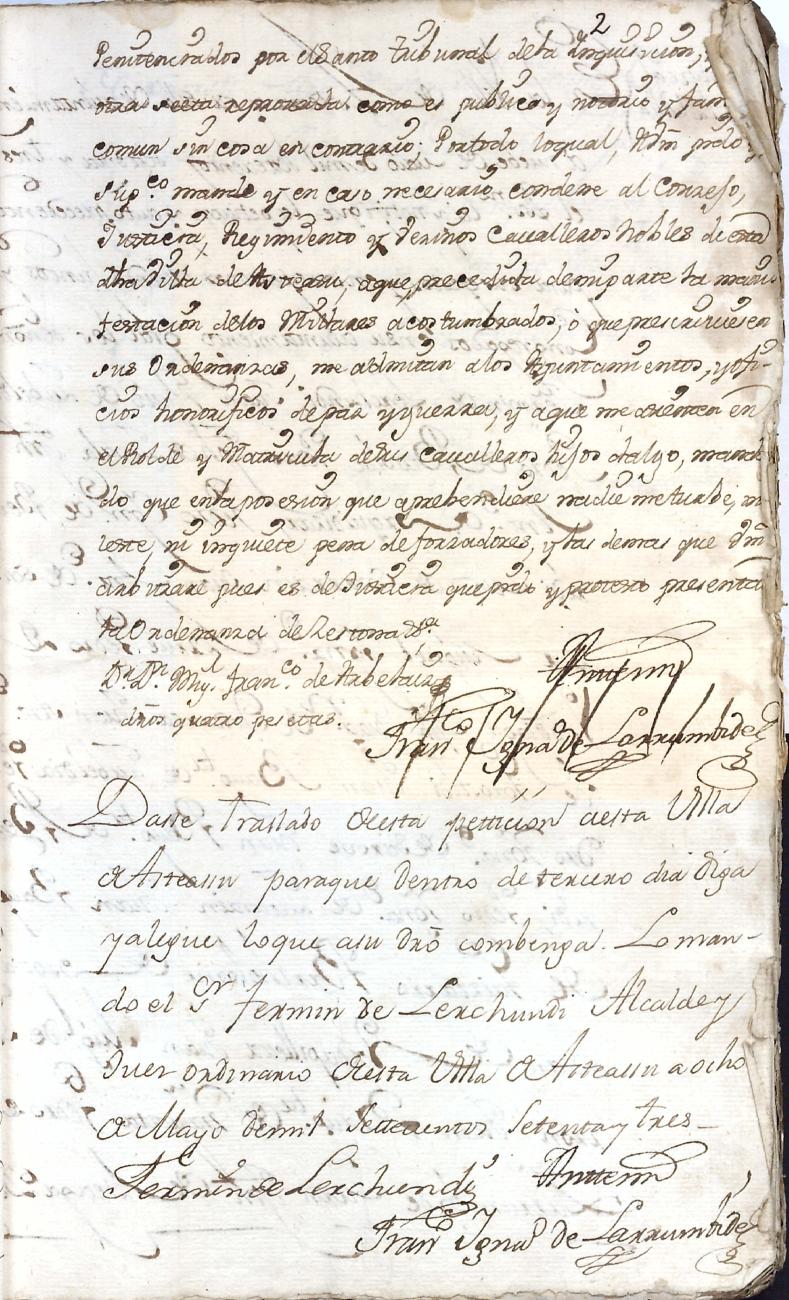 2
Penitenciados por el Santo tribunal de la Inquisicion,
otra secta reprovada como es publico y notorio y fam
comun sin cosa en contrario; Por todo lo qual, A Vm pido y
supco mande y en caso necesario condene al Conzejo,
Justicia, Regimiento y Vezinos Cavalleros Nobles de esta
dha Villa de Asteasu, a que precedida de mi parte la mani-
festacion de los Millares acostumbrados, ò que prescriviesen
sus Ordenanzas, me admitan a los Ayuntamientos, y ofi-
cios honorificos de paz y guerra, y a que me asienten en
el Rolde y Matricula de sus Cavalleros hijos dalgo, mand
do que en la posesion que aprehendiere nadie me turbe, m
leste, ni inquiete pena de forzadores, y las demas que Vm
arbitrare pues es de Justicia que pido y protesto presentar
la Ordenanza de Zestona Va
Dr. Dn. Migl. Franco. de
dros quatro pesetas.
Antemi
Franco Ignao de Larrumbide
Dasse traslado de esta petticion a esta Villa
de Asteassu para que dentro de tercero dia diga
y alegue lo que a su dro combenga. Lo man-
do el Sr Fermin de Lerchundi Alcalde y
Juez ordinario de esta Villa de Asteassu a ocho
de Mayo de mil Settecientos Setenta y tres-
Fermin de Lerchundi
Antemi
Franco Ignao de Larrumbide